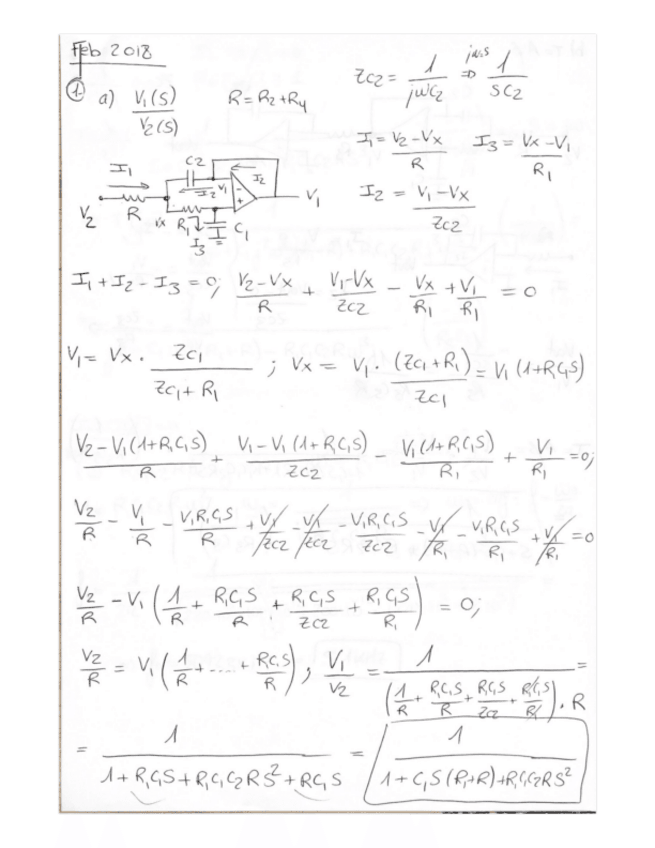 Feb 2018
① a) V₁(S)/V₂(S) R=R₂+R₄ Zc2 = 1/jωC₂ ⇒ jω=s 1/SC₂
I₁ = (V₂-Vx)/R I₃ = (Vx-V₁)/R₁
I₂ = (V₁-Vx)/Zc2
I₁ C2 I₂ V₁ I₂ - +
V₂ R Vx R₁ I₃ C₁ V₁
I₁+I₂-I₃=0; (V₂-Vx)/R + (V₁-Vx)/Zc2 - Vx/R₁ + V₁/R₁ = 0
V₁ = Vx · Zc₁/(Zc₁+R₁) ; Vx = V₁ · (Zc₁+R₁)/Zc₁ = V₁(1+R₁C₁S)
(V₂-V₁(1+R₁C₁S))/R + (V₁-V₁(1+R₁C₁S))/Zc2 - V₁(1+R₁C₁S)/R₁ + V₁/R₁ = 0;
V₂/R - V₁/R - V₁R₁C₁S/R + V₁/Zc2 - V₁/Zc2 - V₁R₁C₁S/Zc2 - V₁/R₁ - V₁R₁C₁S/R₁ + V₁/R₁ = 0
V₂/R - V₁(1/R + R₁C₁S/R + R₁C₁S/Zc2 + R₁C₁S/R₁) = 0;
V₂/R = V₁(1/R + .... + R₁C₁S/R₁); V₁/V₂ = 1/((1/R + R₁C₁S/R + R₁C₁S/Zc2 + R₁C₁S/R₁)·R) =
= 1/(1+R₁C₁S+R₁C₁C₂RS²+RC₁S) = 1/(1+C₁S(R₁+R)+R₁C₁C₂RS²)